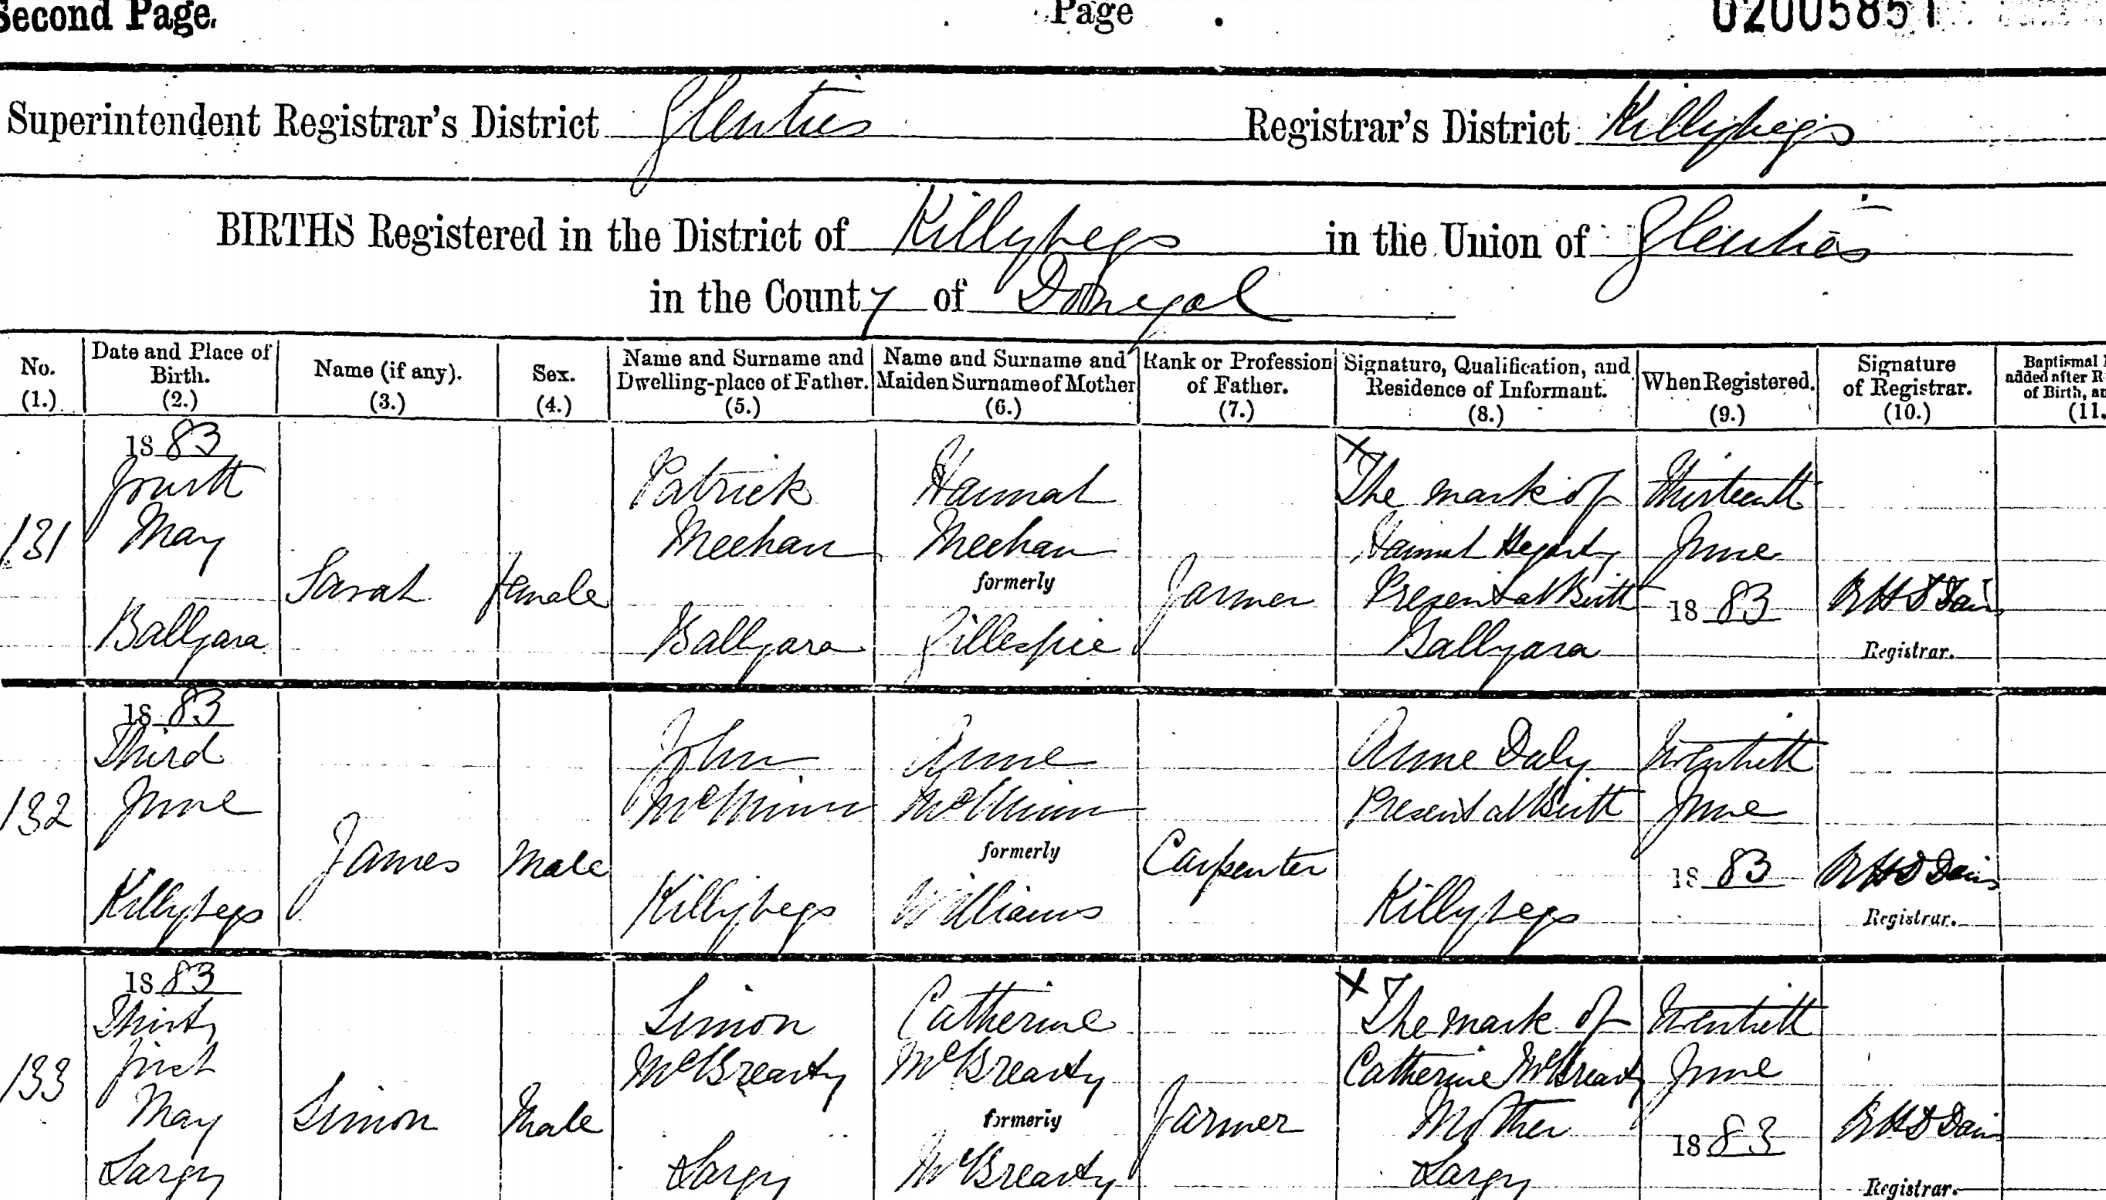 Second Page.
Page
02005851
Superintendent Registrar's District Glenties Registrar's District Killybegs
BIRTHS Registered in the District of Killybegs in the Union of Glenties
in the County of Donegal
No. (1.)
Date and Place of Birth. (2.)
Name (if any). (3.)
Sex. (4.)
Name and Surname and Dwelling-place of Father. (5.)
Name and Surname and Maiden Surname of Mother (6.)
Rank or Profession of Father. (7.)
Signature, Qualification, and Residence of Informant. (8.)
When Registered. (9.)
Signature of Registrar. (10.)
Baptismal
added after
of Birth,
(11.
131
1883
fourth
May
Ballyara
Sarah
female
Patrick
Meehan
Ballyara
Hannah
Meehan
formerly
Gillespie
Farmer
X
The mark of
Hannah Hegarty
Present at Birth
Ballyara
Thirteenth
June
1883
Registrar.
132
1883
Third
June
Killybegs
James
Male
John
Killybegs
Anne
formerly
Williams
Carpenter
Anne Daly
Present at Birth
Killybegs
Twentieth
June
1883
Registrar.
133
1883
Thirty
first
May
Largy
Simon
Male
Simon
McBrearty
Largy
Catherine
McBrearty
formerly
McBrearty
Farmer
X
The mark of
Catherine McBrearty
Mother
Largy
Twentieth
June
1883
Registrar.